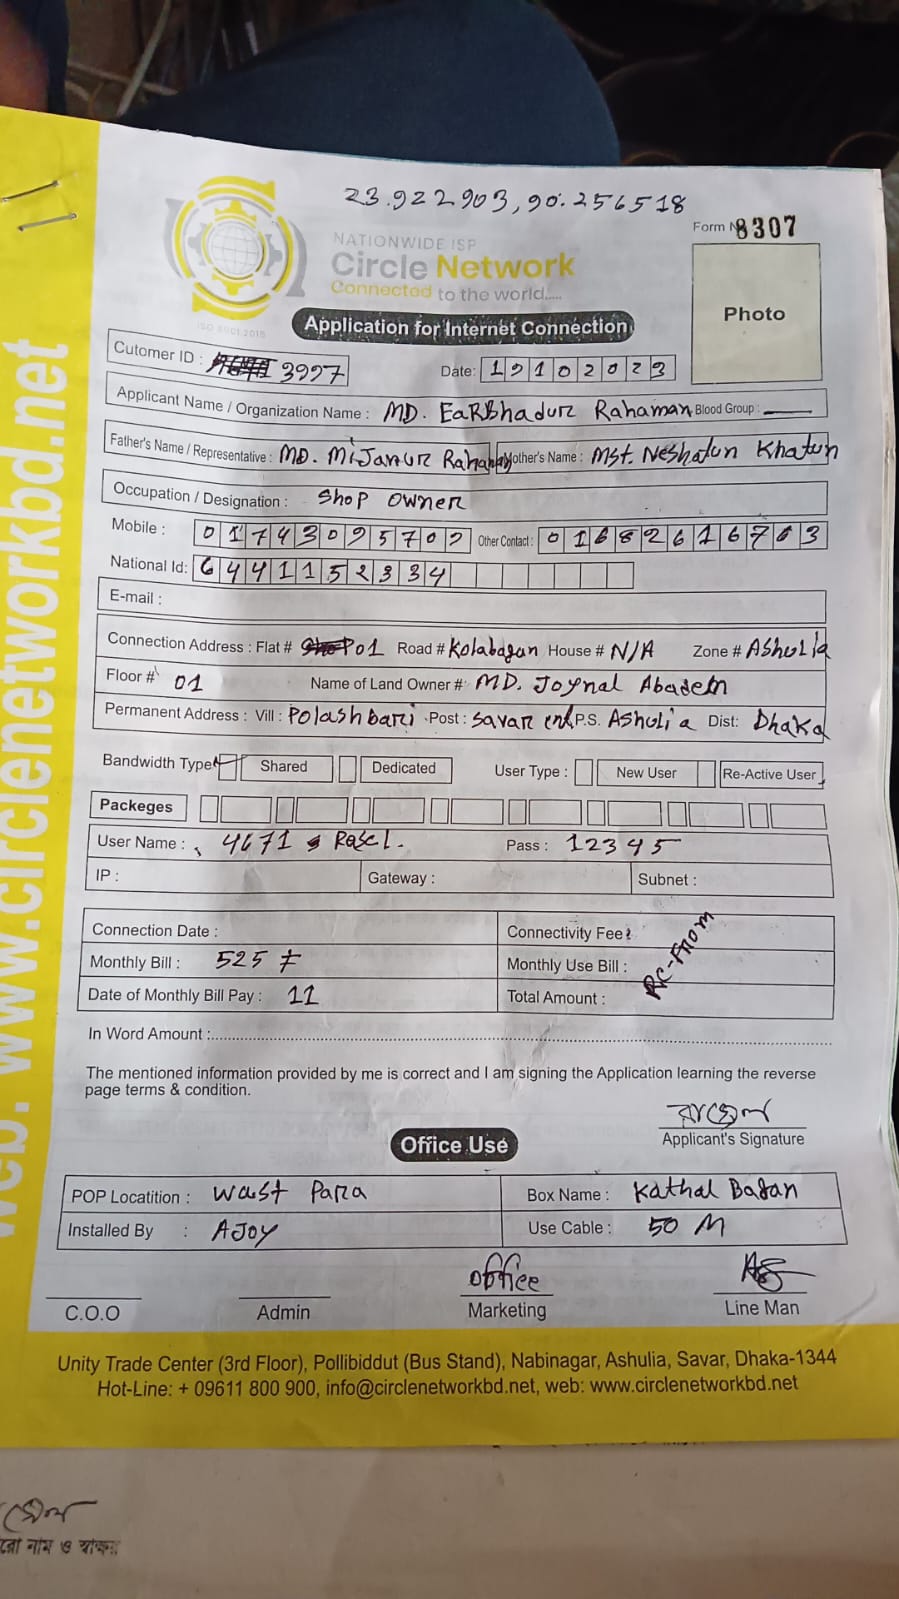 23.922903, 90.256518
Form № 8307
NATIONWIDE ISP
Circle Network
Connected to the world.....
ISO 9001:2015
Photo
Application for Internet Connection
Cutomer ID : 3997
Date: 19102023
Applicant Name / Organization Name : MD. EaRBhadur Rahaman Blood Group :
Father's Name / Representative : MD. MiJanur Rahaman Mother's Name : Mst. Neshatun Khatun
Occupation / Designation : Shop owner
Mobile : 01743095709 Other Contact : 01682616763
National Id: 6441152334
E-mail :
Connection Address : Flat # P01 Road # Kolabagan House # N/A Zone # Ashulia
Floor # 01 Name of Land Owner # MD. Joynal Abadein
Permanent Address : Vill : Polashbari Post : Savar cnt P.S. Ashulia Dist: Dhaka
Bandwidth Type Shared Dedicated User Type : New User Re-Active User
Packeges
User Name : 4671 Rasel. Pass : 12345
IP : Gateway : Subnet :
Connection Date : Connectivity Fee :
Monthly Bill : 525 Monthly Use Bill :
Date of Monthly Bill Pay : 11 Total Amount :
RC-From
In Word Amount :
The mentioned information provided by me is correct and I am signing the Application learning the reverse
page terms & condition.
রাসেল
Applicant's Signature
Office Use
POP Locatition : Wast Para Box Name : Kathal Bagan
Installed By : AJoy Use Cable : 50 M
office
C.O.O Admin Marketing Line Man
Unity Trade Center (3rd Floor), Pollibiddut (Bus Stand), Nabinagar, Ashulia, Savar, Dhaka-1344
Hot-Line: + 09611 800 900, info@circlenetworkbd.net, web: www.circlenetworkbd.net
web: www.circlenetworkbd.net
নাম ও স্বাক্ষর